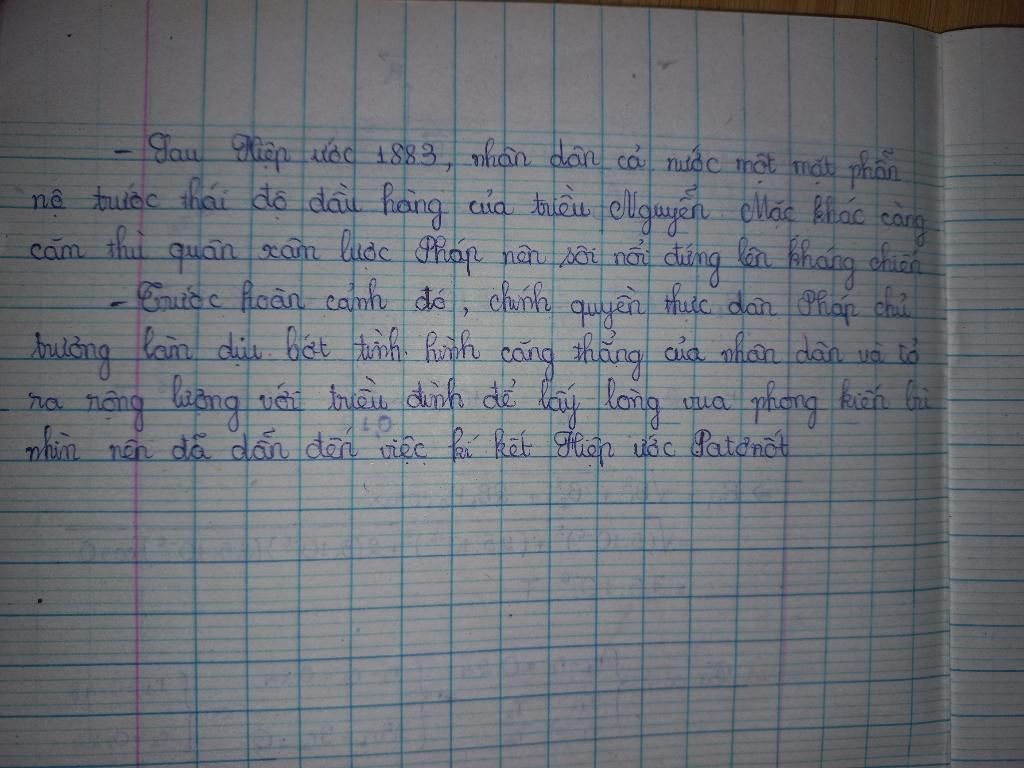 - Sau Hiệp ước 1883, nhân dân cả nước một mặt phẫn
nộ trước thái độ đầu hàng của triều Nguyễn. Mặc khác càng
căm thù quân xâm lược Pháp nên sôi nổi đứng lên kháng chiến
- Trước hoàn cảnh đó, chính quyền thực dân Pháp chủ
trương làm dịu bớt tình hình căng thẳng của nhân dân và tỏ
ra rộng lượng với triều đình để lấy lòng vua phong kiến bù
nhìn nên đã dẫn đến việc kí kết Hiệp ước Patơnốt